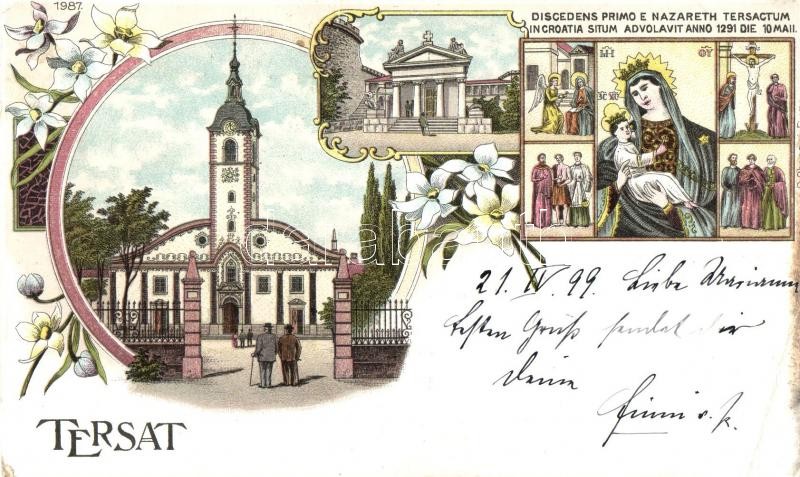 1987.
DISCEDENS PRIMO E NAZARETH TERSACTUM
IN CROATIA SITUM ADVOLAVIT ANNO 1291 DIE 10 MAII.
TERSAT
21. IV. 99. Liebe
besten Gruß sendet dir
deine